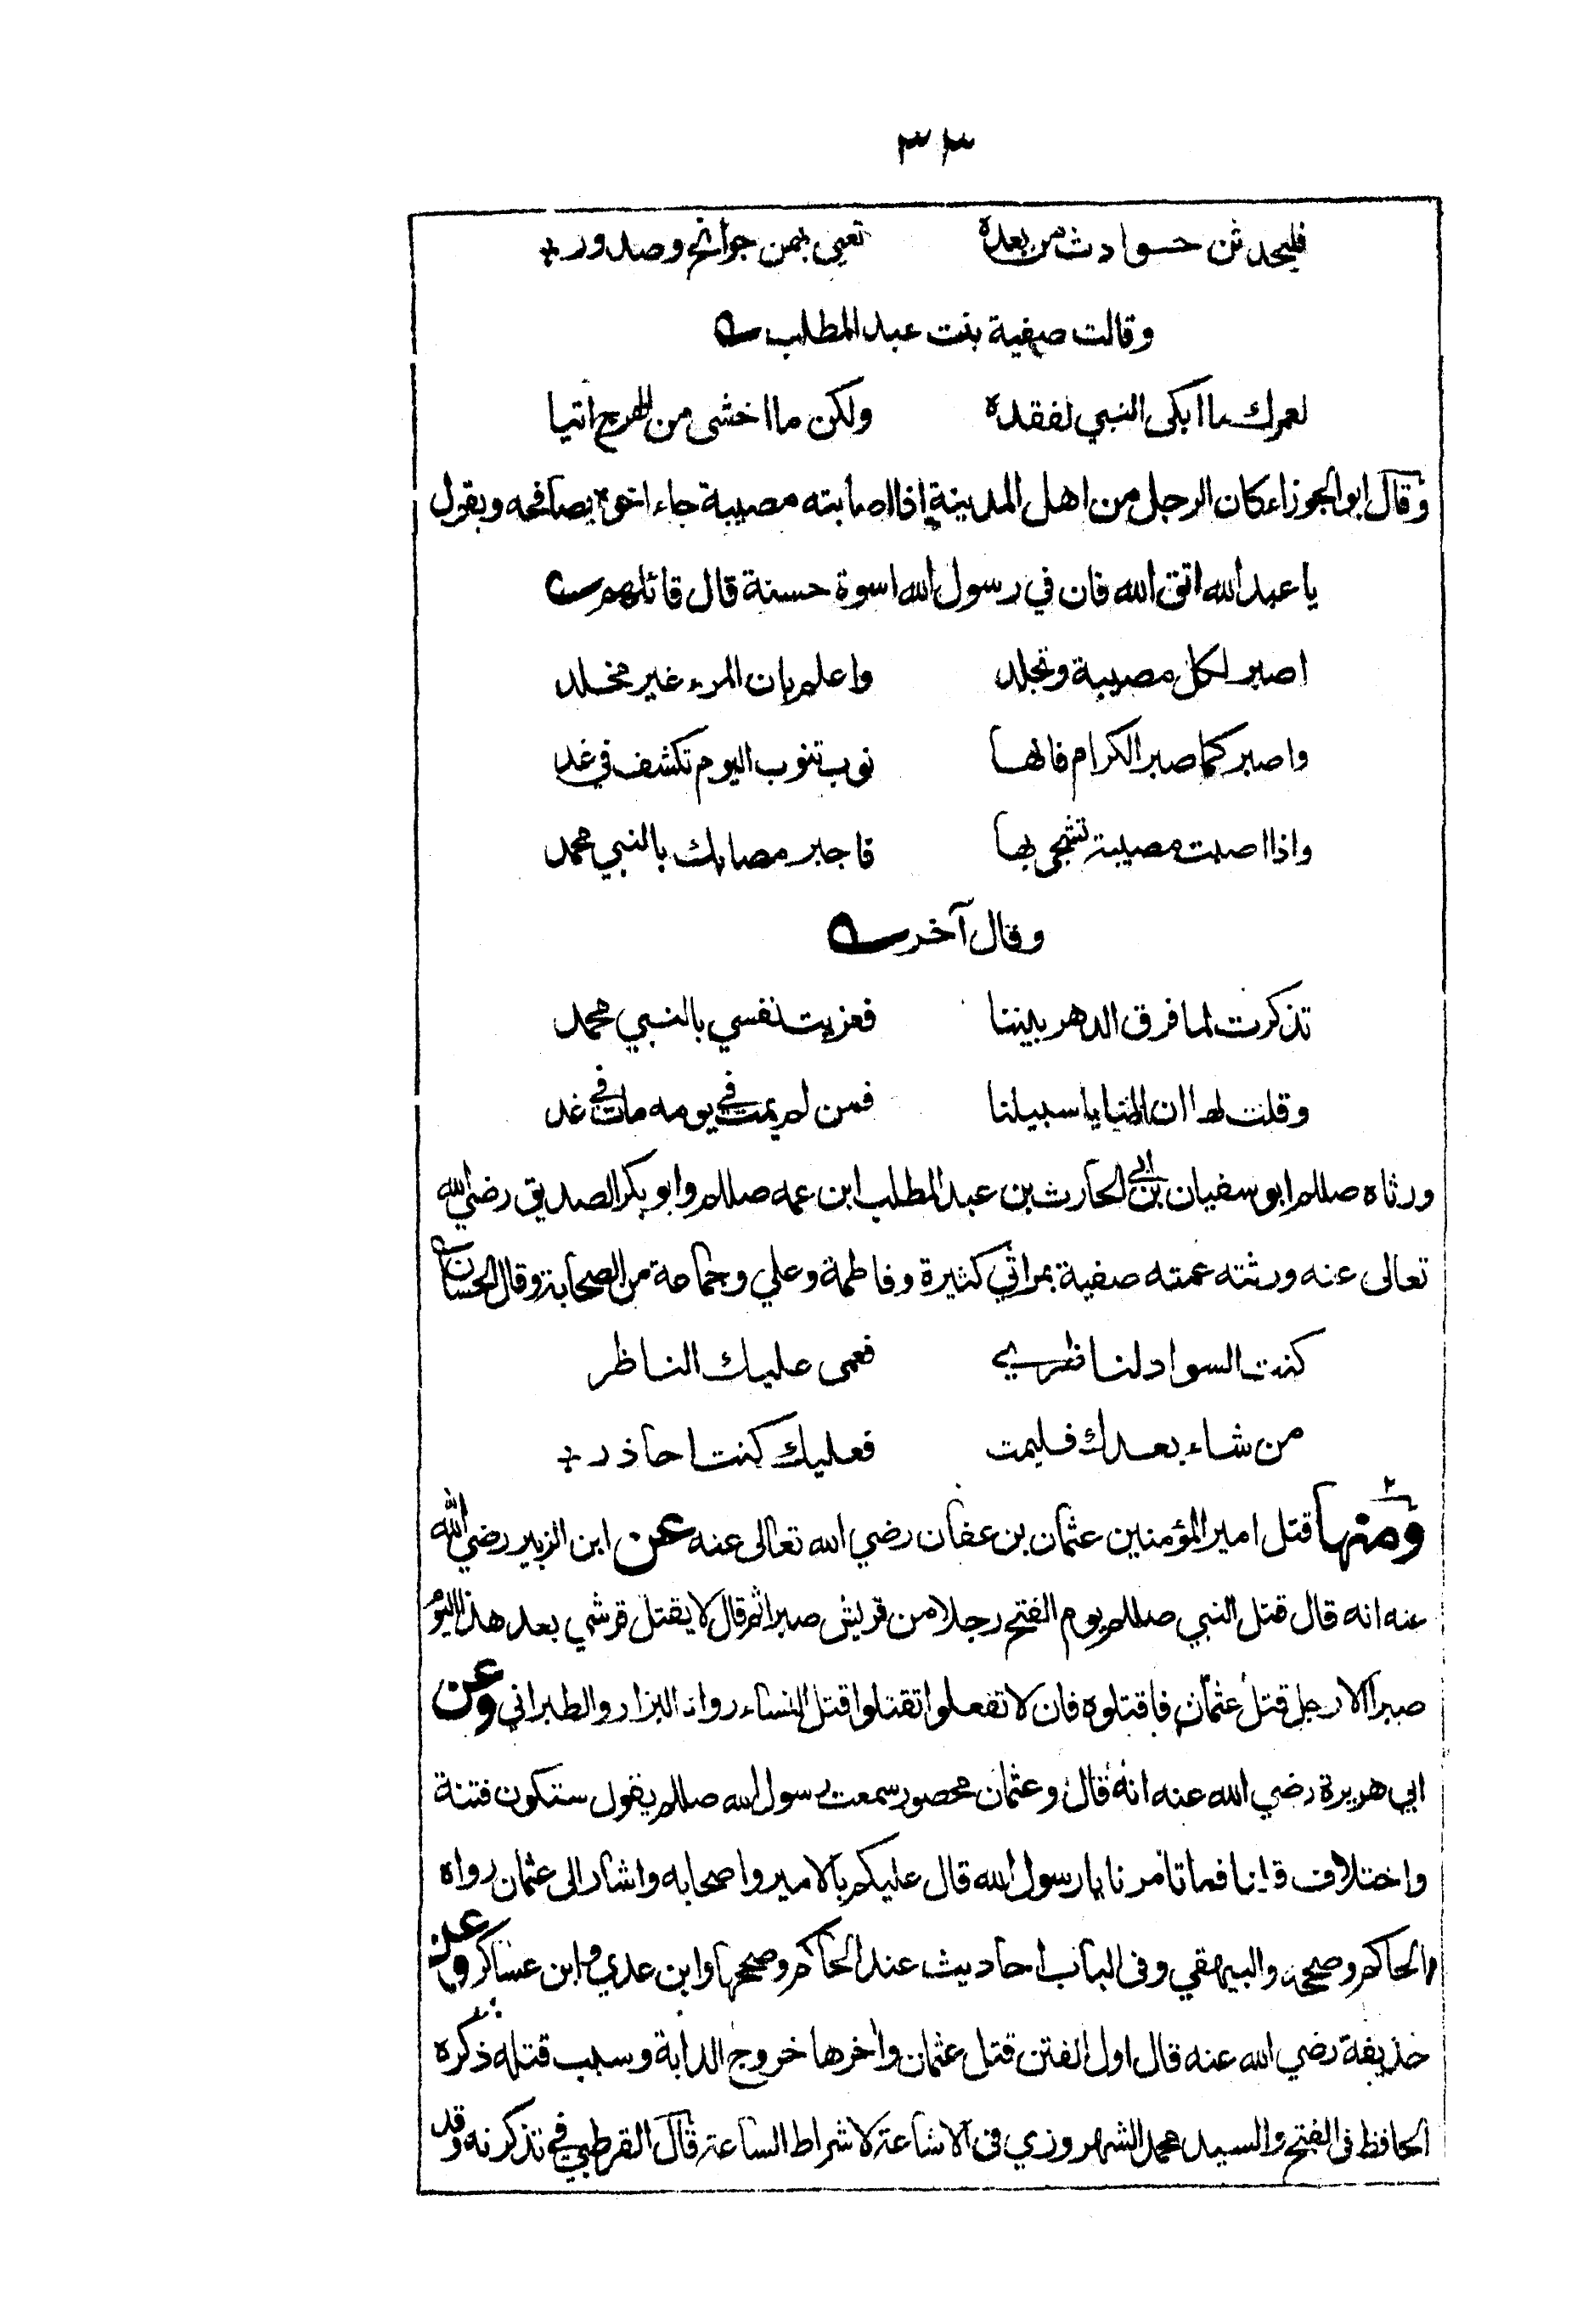 ٣٣
فليحدثن حوادث من بعده تعيى بهن جوانح وصدور
وقالت صفية بنت عبد المطلب
لعمرك ما ابكى النبي لفقده ولكن ما اخشى من الهرج اتيا
وقال ابو الجوزاء كان الرجل من اهل المدينة اذا اصابته مصيبة جاء اخوه يصافحه ويقول
يا عبد الله اتق الله فان في رسول الله اسوة حسنة قال قائلهم
اصبر لكل مصيبة وتجلد واعلم بان المرء غير مخلد
واصبر كما صبر الكرام فانها نوب تنوب اليوم تكشف في غد
واذا اصبت مصيبة تشجى بها فاجبر مصابك بالنبي محمد
وقال آخر
تذكرت لما فرق الدهر بيننا فعزيت نفسي بالنبي محمد
وقلت لها ان المنايا سبيلنا فمن لم يمت في يومه مات في غد
ورثاه صللم ابو سفيان بن ابي الحارث بن عبد المطلب ابن عمه صللم وابو بكر الصديق رضي الله
تعالى عنه ورثته عمته صفية بمراثي كثيرة وفاطمة وعلي وجماعة من الصحابة وقال الحسان
كنت السواد لناظري فعمى عليك الناظر
من شاء بعدك فليمت فعليك كنت احاذر
ومنها قتل امير المؤمنين عثمان بن عفان رضي الله تعالى عنه عن ابن الزبير رضي الله
عنه انه قال قتل النبي صللم يوم الفتح رجلا من قريش صبرا ثم قال لا يقتل قرشي بعد هذا اليوم
صبرا الا رجل قتل عثمان فاقتلوه فان لا تفعلوا تقتلوا قتل النساء رواه البزار والطبراني وعن
ابي هريرة رضي الله عنه انه قال وعثمان محصور سمعت رسول الله صللم يقول ستكون فتنة
واختلاف قلنا فما تامرنا يا رسول الله قال عليكم بالامير واصحابه واشار الى عثمان رواه
الحاكم وصححه والبيهقي وفى الباب احاديث عند الحاكم وصححها وابن عدي وابن عساكر وعن
حذيفة رضي الله عنه قال اول الفتن قتل عثمان وآخرها خروج الدابة وسبب قتله ذكره
الحافظ فى الفتح والسيد محمد الشهروزي فى الاشاعة لاشراط الساعة قال القرطبي في تذكرته وقد